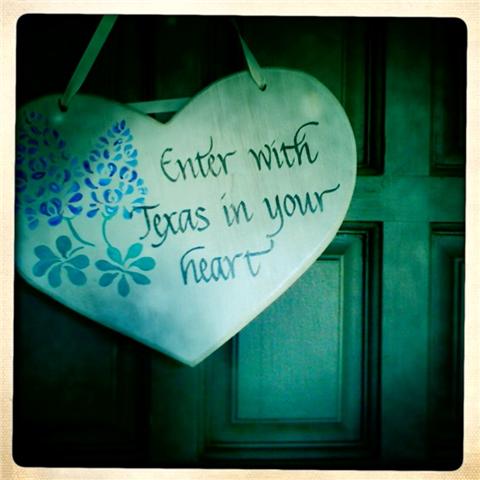 Enter with
Texas in your
heart